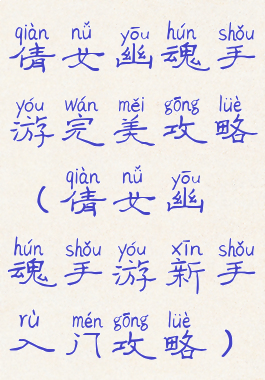 qiàn nǚ yōu hún shǒu
倩女幽魂手
yóu wán měi gōng lüè
游完美攻略
qiàn nǚ yōu
(倩女幽
hún shǒu yóu xīn shǒu
魂手游新手
rù mén gōng lüè
入门攻略)